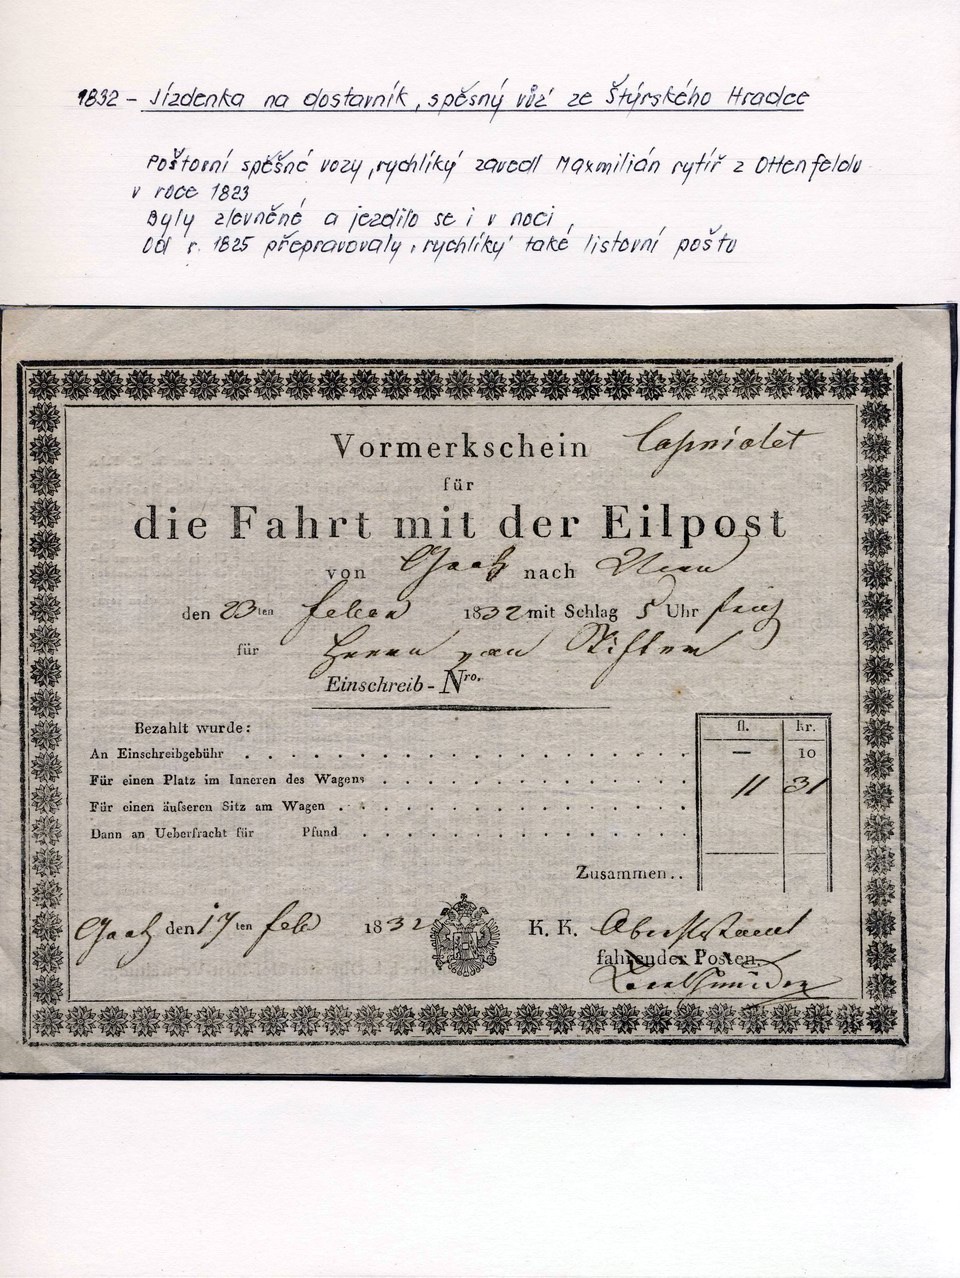 1832 - Jízdenka na dostavník, spěšný vůz ze Štýrského Hradce
Poštovní spěšné vozy ,rychlíky' zavedl Maxmilián rytíř z Ottenfeldu
v roce 1823
Byly zlevněné a jezdilo se i v noci
Od r. 1825 přepravovaly ,rychlíky' také listovní poštu
Vormerkschein
für
die Fahrt mit der Eilpost
von Gratz nach Wien
den 23ten 1832 mit Schlag 5 Uhr früh
für Herrn von
Einschreib-Nro.
Bezahlt wurde: fl. kr.
An Einschreibgebühr — 10
Für einen Platz im Inneren des Wagens 11 31
Für einen äufseren Sitz am Wagen
Dann an Ueberfracht für Pfund
Zusammen..
Gratz den 17ten Feb 1832 K. K.
fahrender Posten.